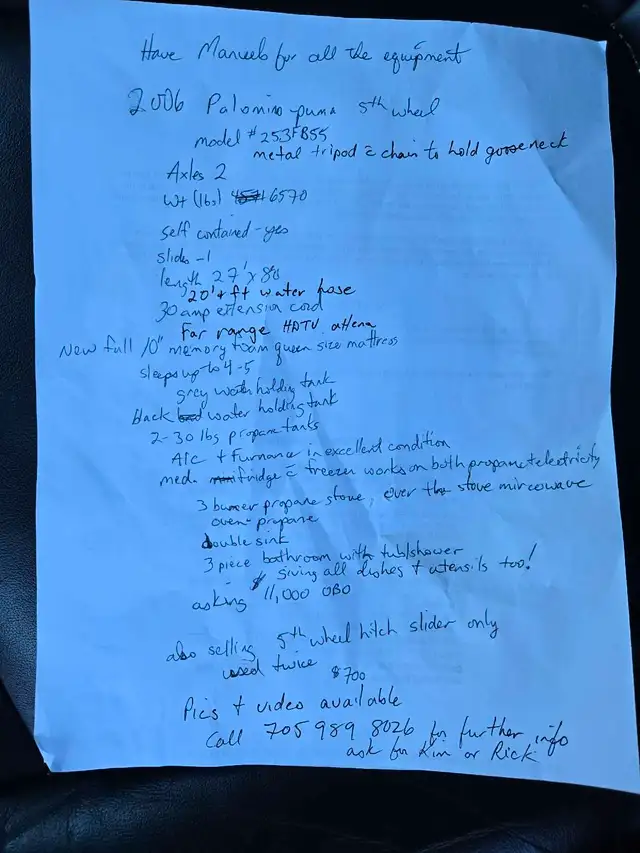 Have Manuels for all the equipment
2006 Palomino puma 5th wheel
model # 253FB55
metal tripod c̄ chain to hold gooseneck
Axles 2
Wt (lbs) 6570
self contained - yes
slides - 1
length 27' x 80
20' + ft water hose
30 amp extension cord
Far range HDTV attena
New full 10" memory foam queen size mattress
sleeps up to 4-5
grey water holding tank
black water holding tank
2-30 lbs propane tanks
A/C + Furnance in excellent condition
med. fridge c̄ freezer works on both propane + electricity
3 burner propane stove, over the stove mircowave
oven propane
double sink
3 piece bathroom with tub/shower
giving all dishes + utensils too!
asking $11,000 OBO
also selling 5th wheel hitch slider only
used twice $700
Pics + video available
Call 705 989 8026 for further info
ask for Kim or Rick